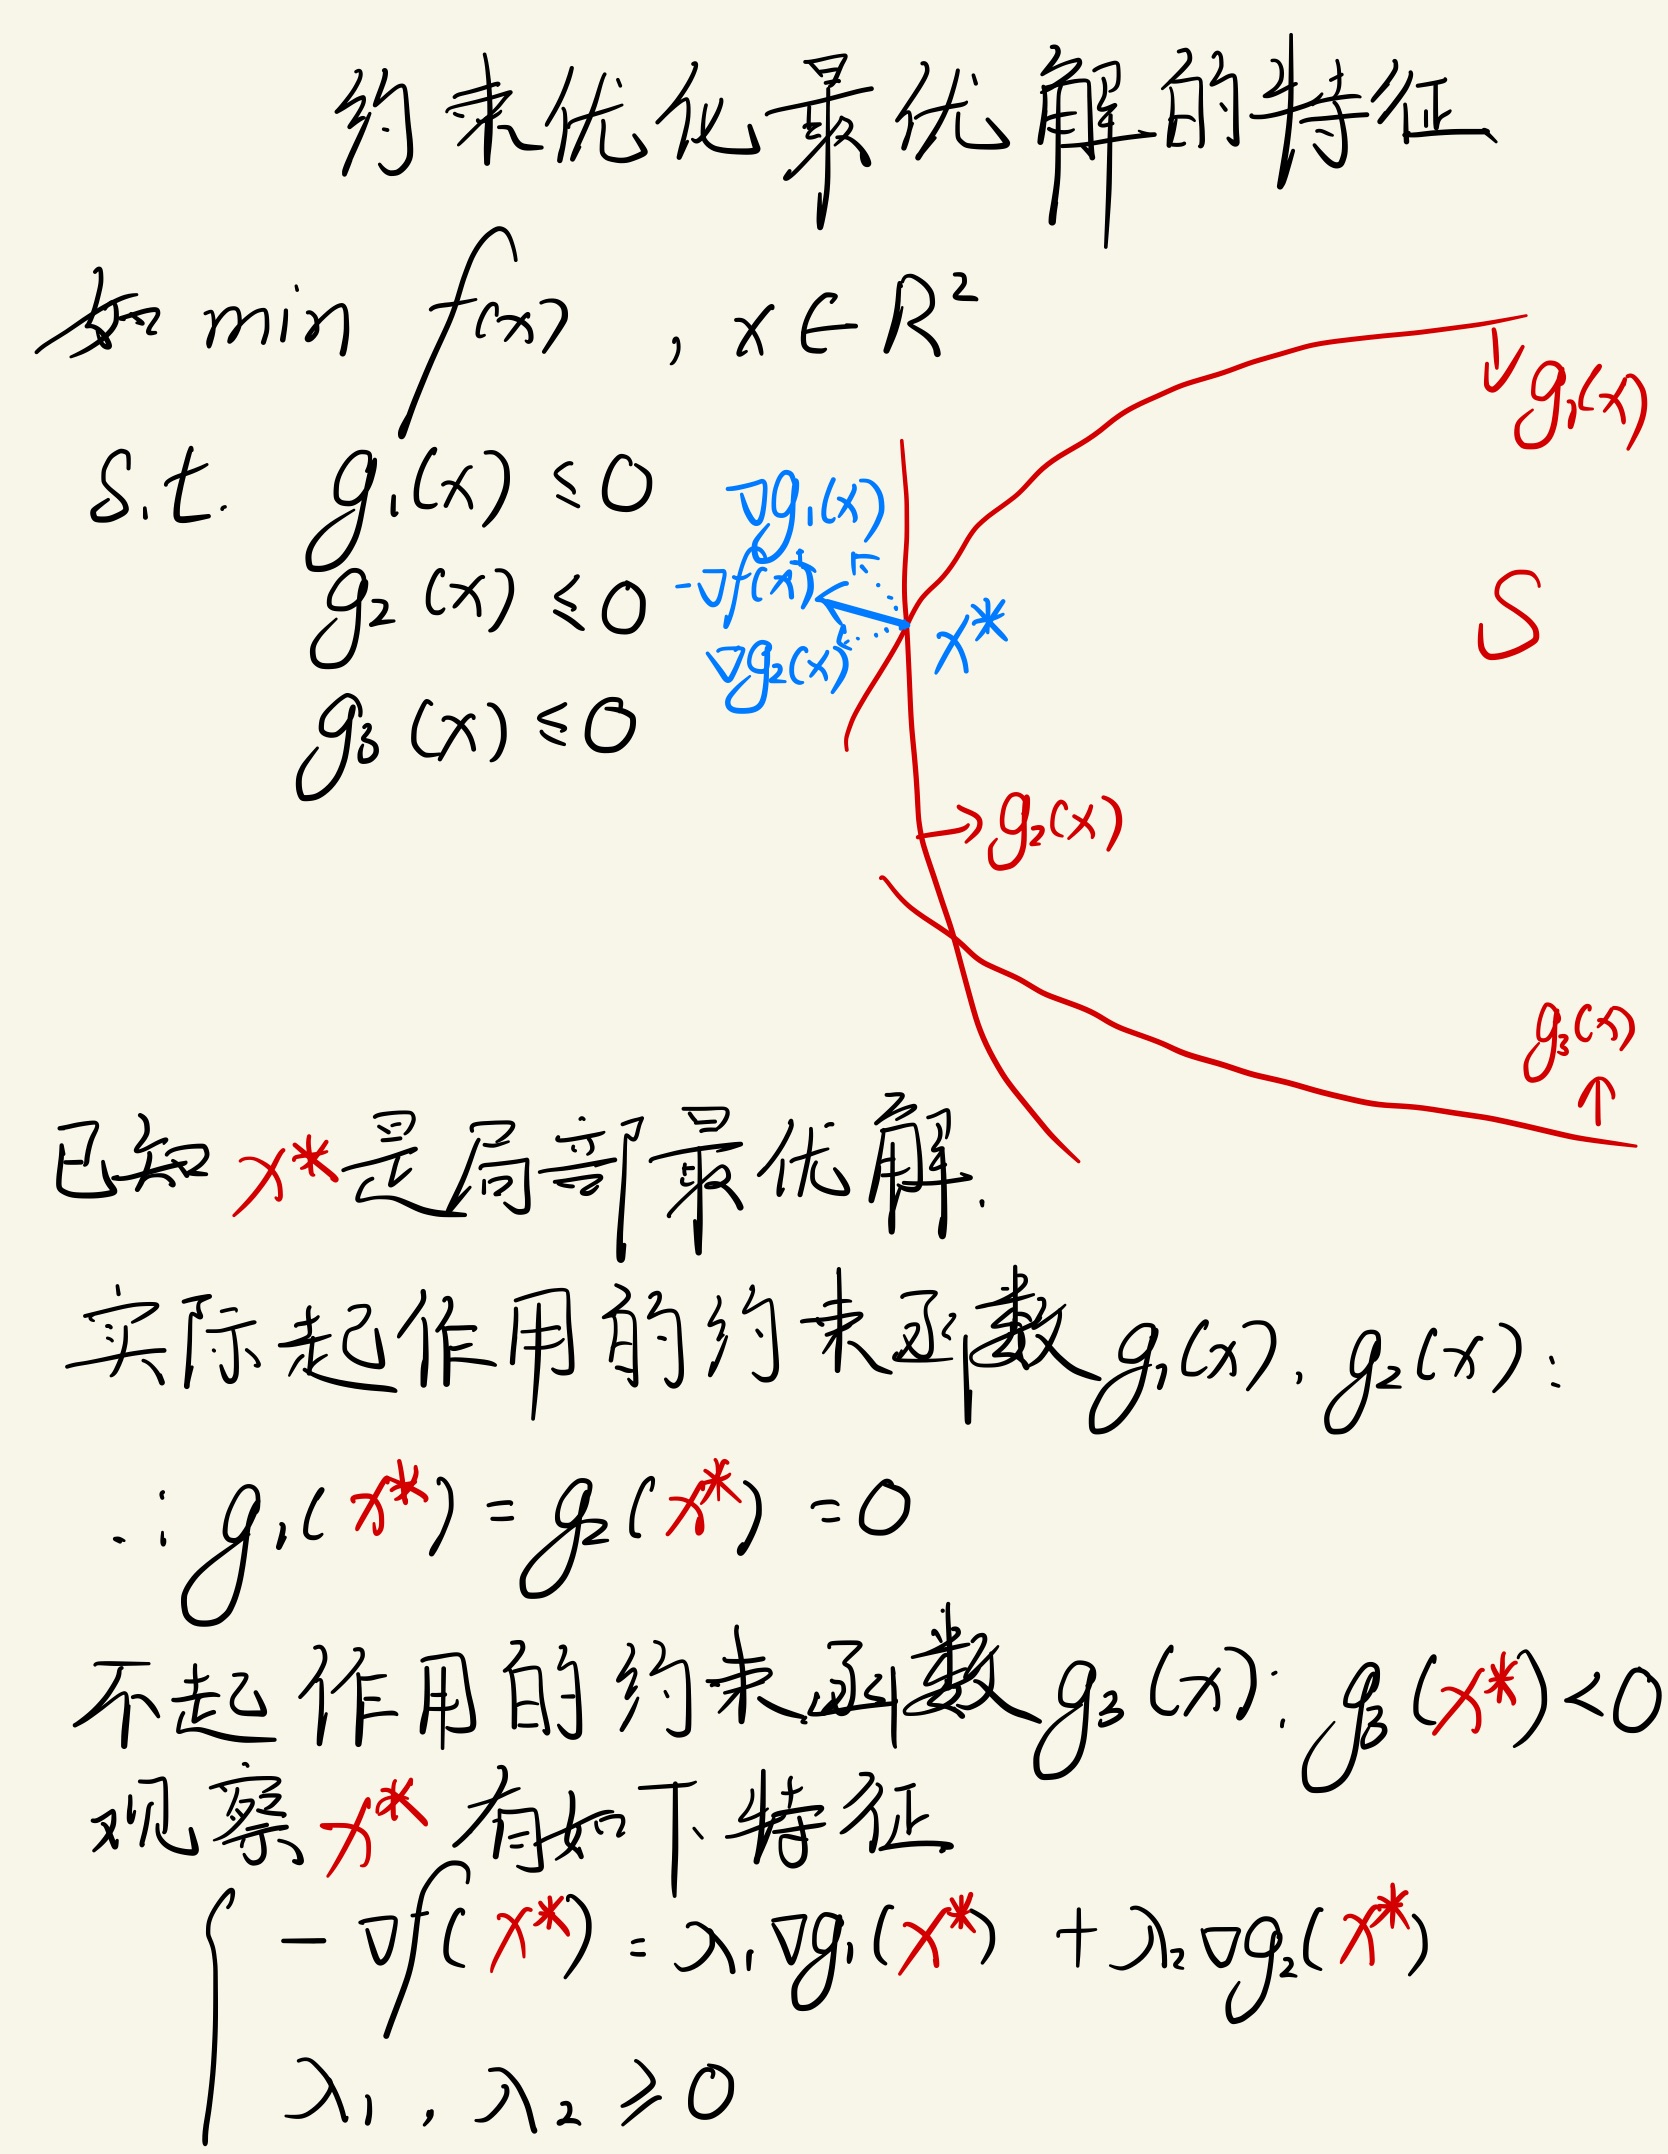 约束优化最优解的特征
如 min f(x) , x∈R²
s.t. g₁(x) ≤0
g₂(x) ≤0
g₃(x) ≤0
g₁(x)
∇g₁(x)
-∇f(x)
∇g₂(x)
x*
S
g₂(x)
g₃(x)
已知 x* 是局部最优解.
实际起作用的约束函数 g₁(x), g₂(x):
∴ g₁(x*) = g₂(x*) = 0
不起作用的约束函数 g₃(x): g₃(x*)<0
观察 x* 有如下特征
-∇f(x*) = λ₁∇g₁(x*) + λ₂∇g₂(x*)
λ₁, λ₂ ≥ 0